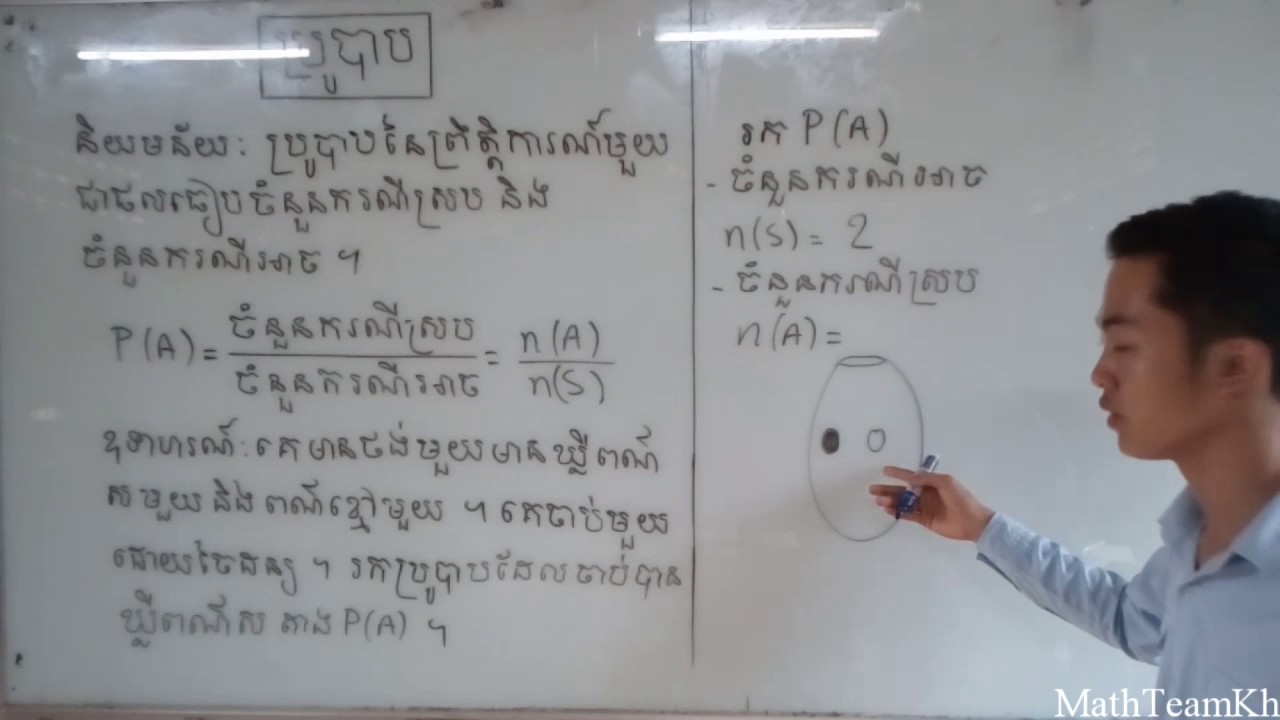 ប្រូបាប
និយមន័យ: ប្រូបាបនៃព្រឹត្តិការណ៍មួយ
ជាផលធៀបចំនួនករណីស្រប និង
ចំនួនករណីអាច ។
P(A) = ចំនួនករណីស្រប / ចំនួនករណីអាច = n(A) / n(S)
ឧទាហរណ៍: គេមានថង់មួយមានឃ្លីពណ៌
សមួយ និងពណ៌ខ្មៅមួយ ។ គេចាប់មួយ
ដោយចៃដន្យ ។ រកប្រូបាបដែលចាប់បាន
ឃ្លីពណ៌ស តាង P(A) ។
រក P(A)
- ចំនួនករណីអាច
n(S) = 2
- ចំនួនករណីស្រប
n(A) =
MathTeamKh